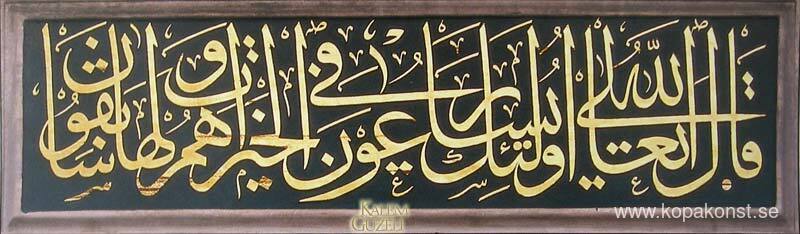 قال الله تعالى أولئك يسارعون في الخيرات وهم لها سابقون
KALEM GÜZELİ
www.kopakonst.se